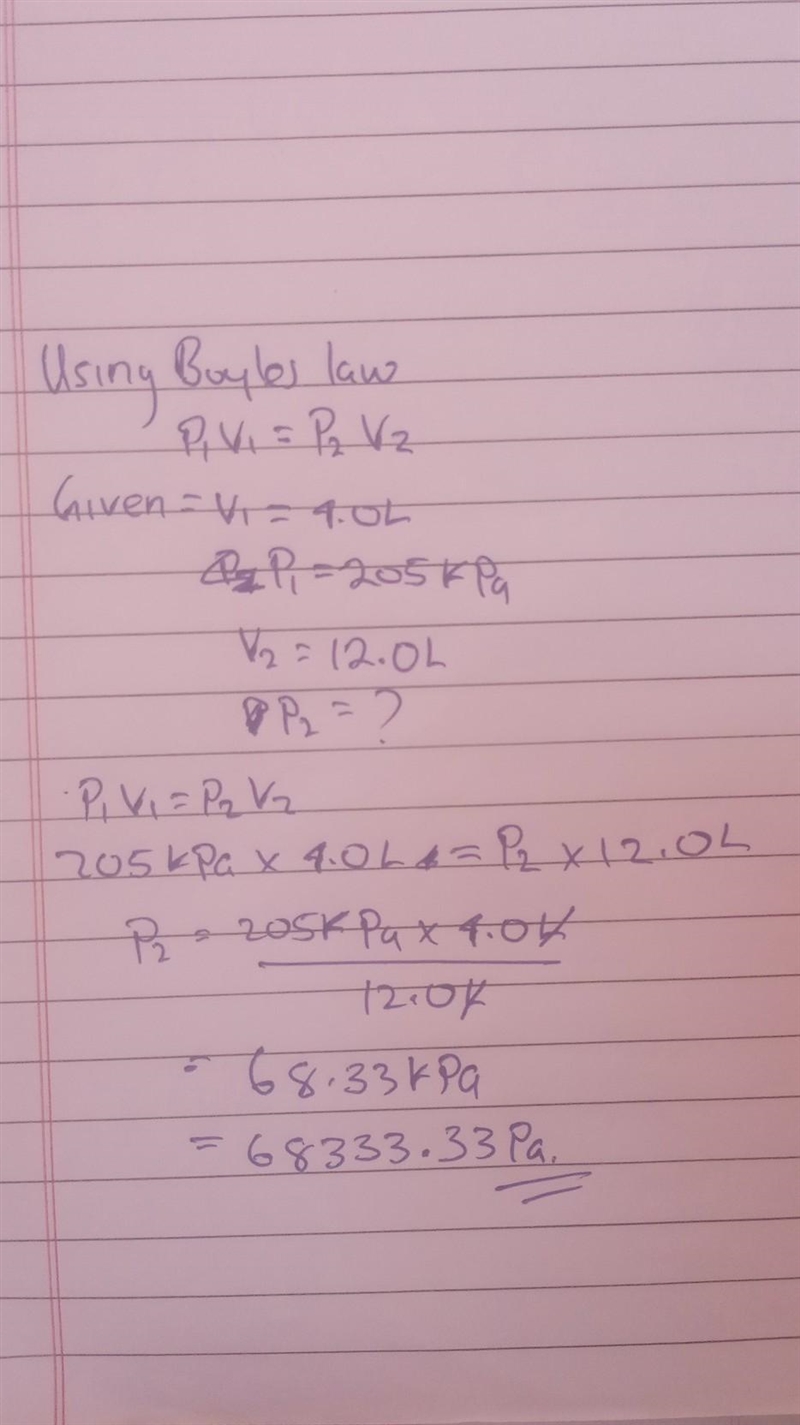 Using Boyles law
P₁V₁ = P₂ V₂
Given = V₁ = 4.0L
P₁ = 205 KPa
V₂ = 12.0L
P₂ = ?
P₁ V₁ = P₂ V₂
205 KPa x 4.0L = P₂ x 12.0L
P₂ = 205K Pa x 4.0L
12.0L
= 68.33 KPa
= 68333.33 Pa.